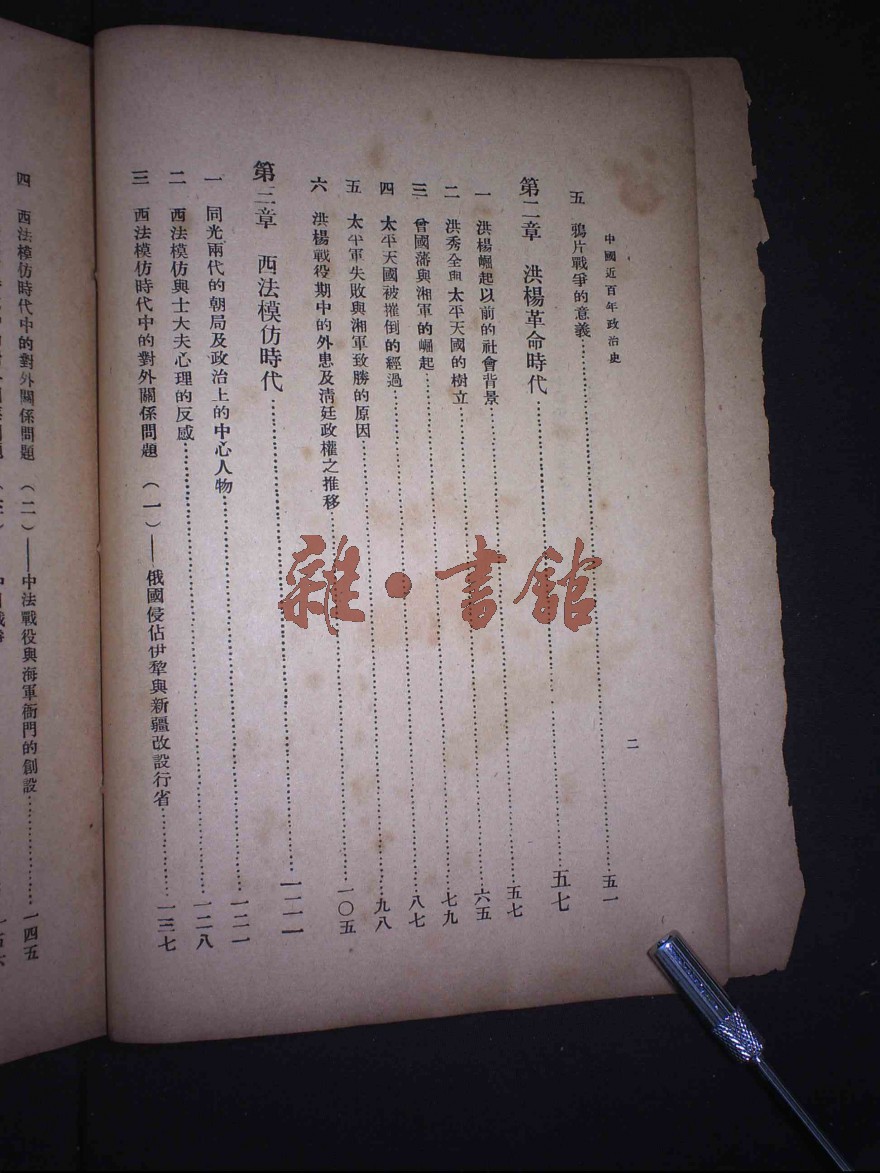 中國近百年政治史 二
五 鴉片戰爭的意義……五一
第二章 洪楊革命時代……五七
一 洪楊崛起以前的社會背景……五七
二 洪秀全與太平天國的樹立……六五
三 曾國藩與湘軍的崛起……七九
四 太平天國被摧倒的經過……八七
五 太平軍失敗與湘軍致勝的原因……九八
六 洪楊戰役期中的外患及清廷政權之推移……一〇五
第三章 西法模仿時代……一二一
一 同光兩代的朝局及政治上的中心人物……一二一
二 西法模仿與士大夫心理的反感……一二八
三 西法模仿時代中的對外關係問題（一）——俄國侵佔伊犂與新疆改設行省……一三七
四 西法模仿時代中的對外關係問題（二）——中法戰役與海軍衙門的創設……一四五
雜·書館